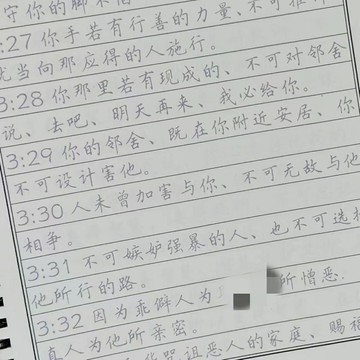 守你的脚不
3:27 你手若有行善的力量、不可推
就当向那应得的人施行。
3:28 你那里若有现成的、不可对邻舍
说、去吧、明天再来、我必给你。
3:29 你的邻舍、既在你附近安居、你
不可设计害他。
3:30 人未曾加害与你、不可无故与他
相争。
3:31 不可嫉妒强暴的人、也不可选择
他所行的路。
3:32 因为乖僻人为 所憎恶.
真人为他所亲密。
咒诅恶人的家庭、赐福